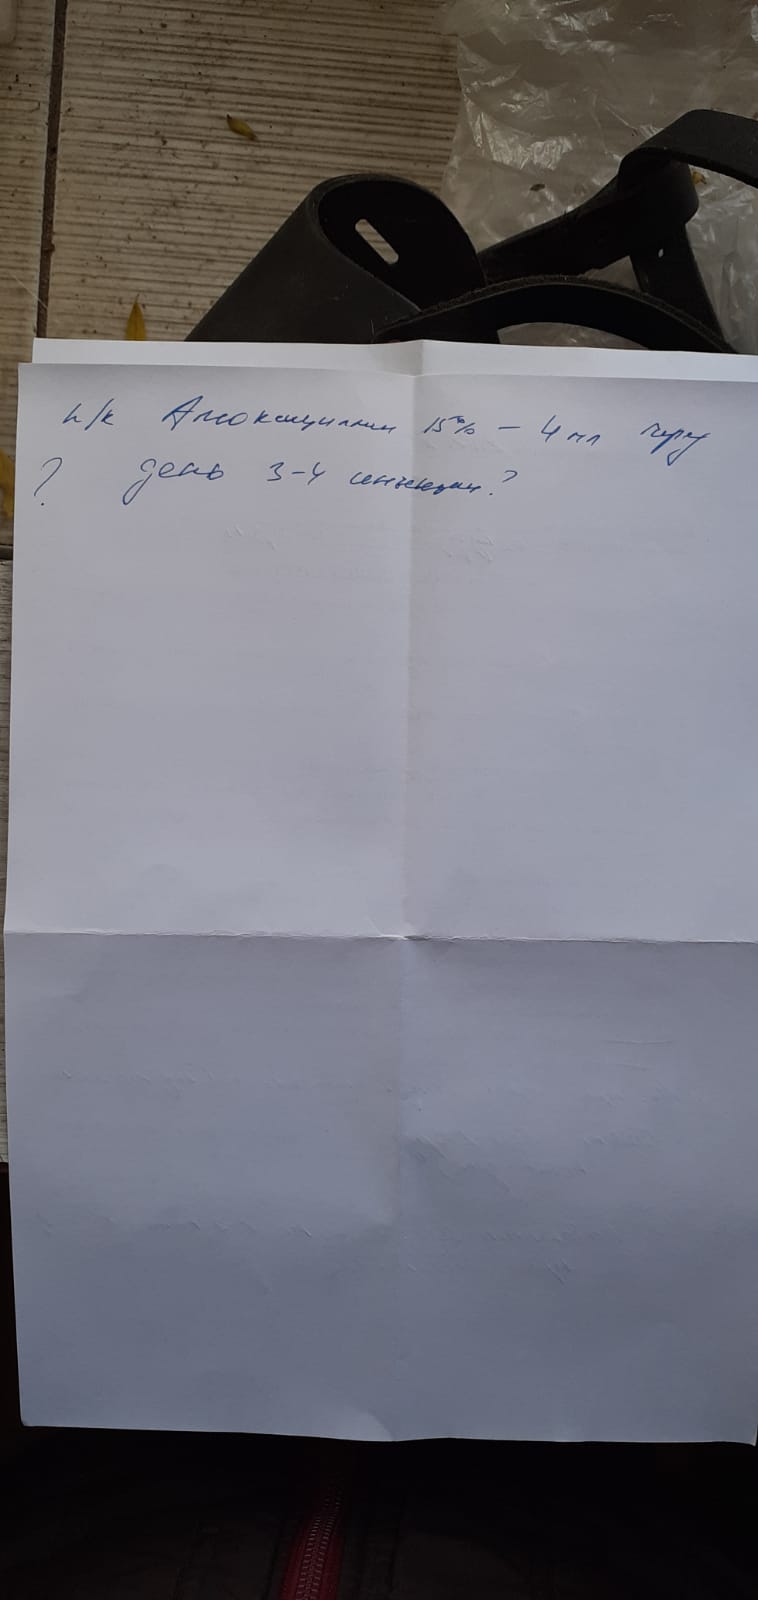 п/к Амоксициллин 15% – 4 мл через
? день 3-4 инъекции?